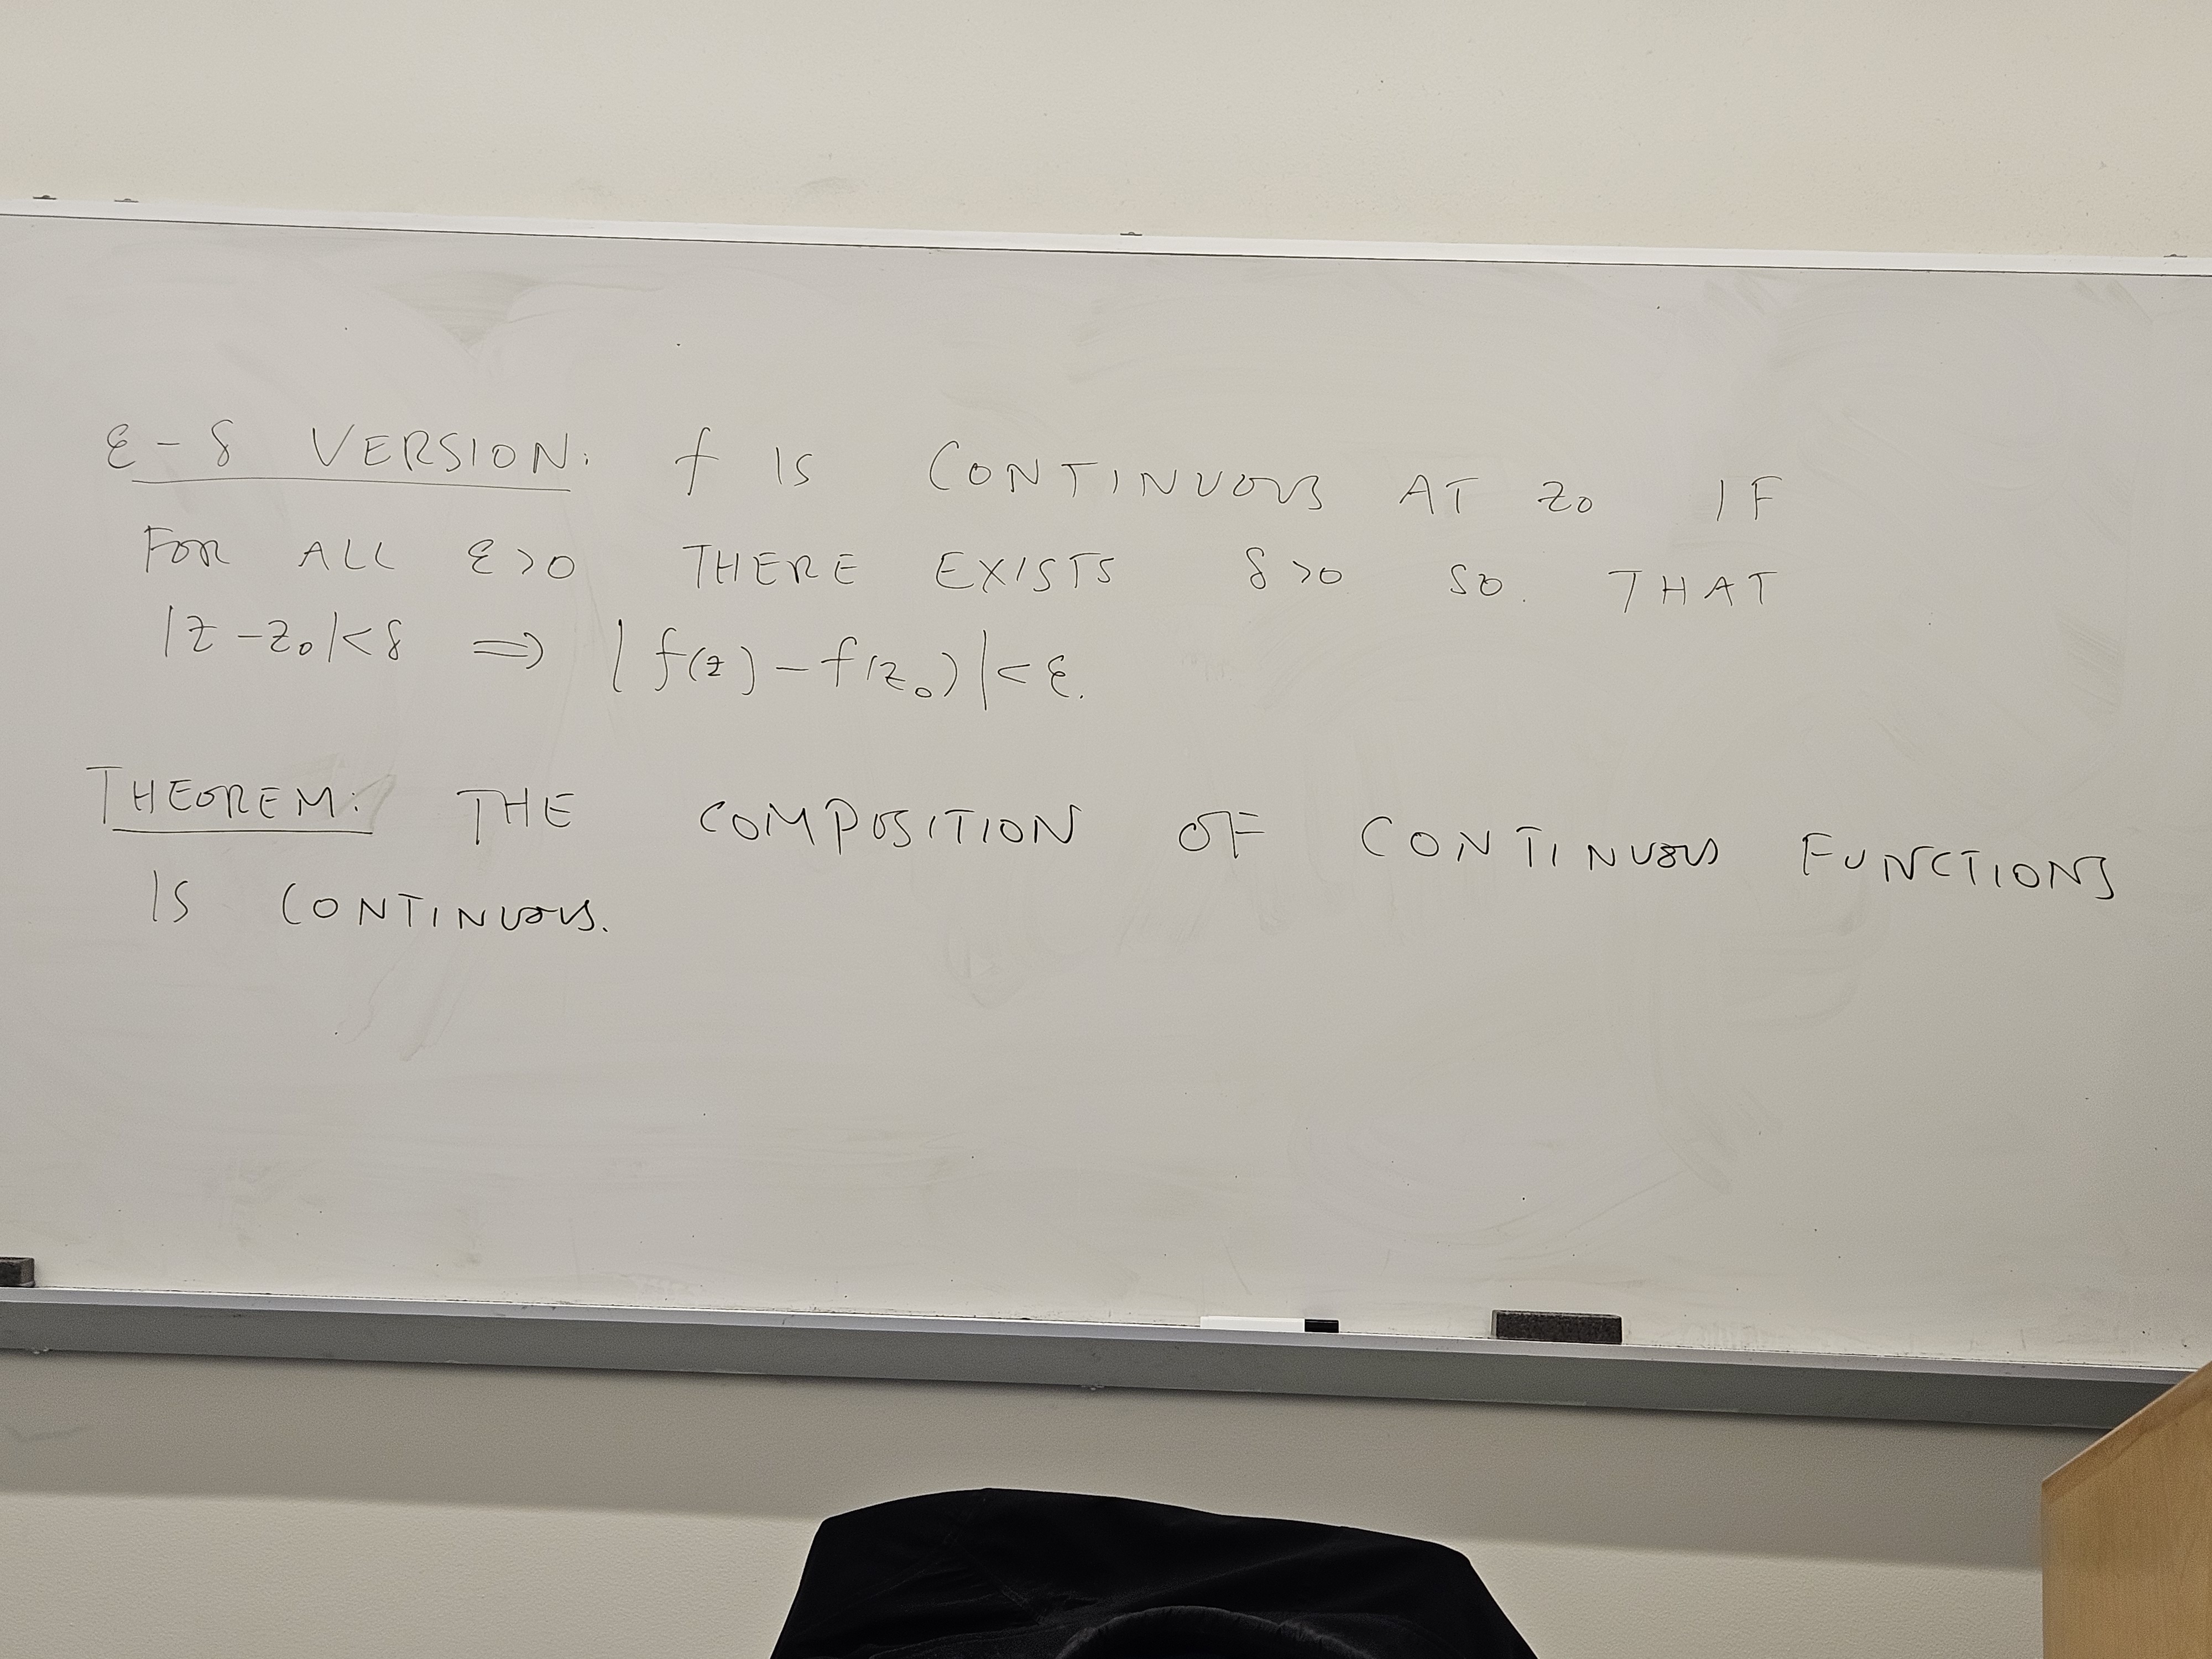 ε-δ VERSION: f IS CONTINUOUS AT z₀ IF
FOR ALL ε>0 THERE EXISTS δ>0 SO THAT
|z-z₀|<δ ⟹ |f(z)-f(z₀)|<ε.
THEOREM: THE COMPOSITION OF CONTINUOUS FUNCTIONS
IS CONTINUOUS.